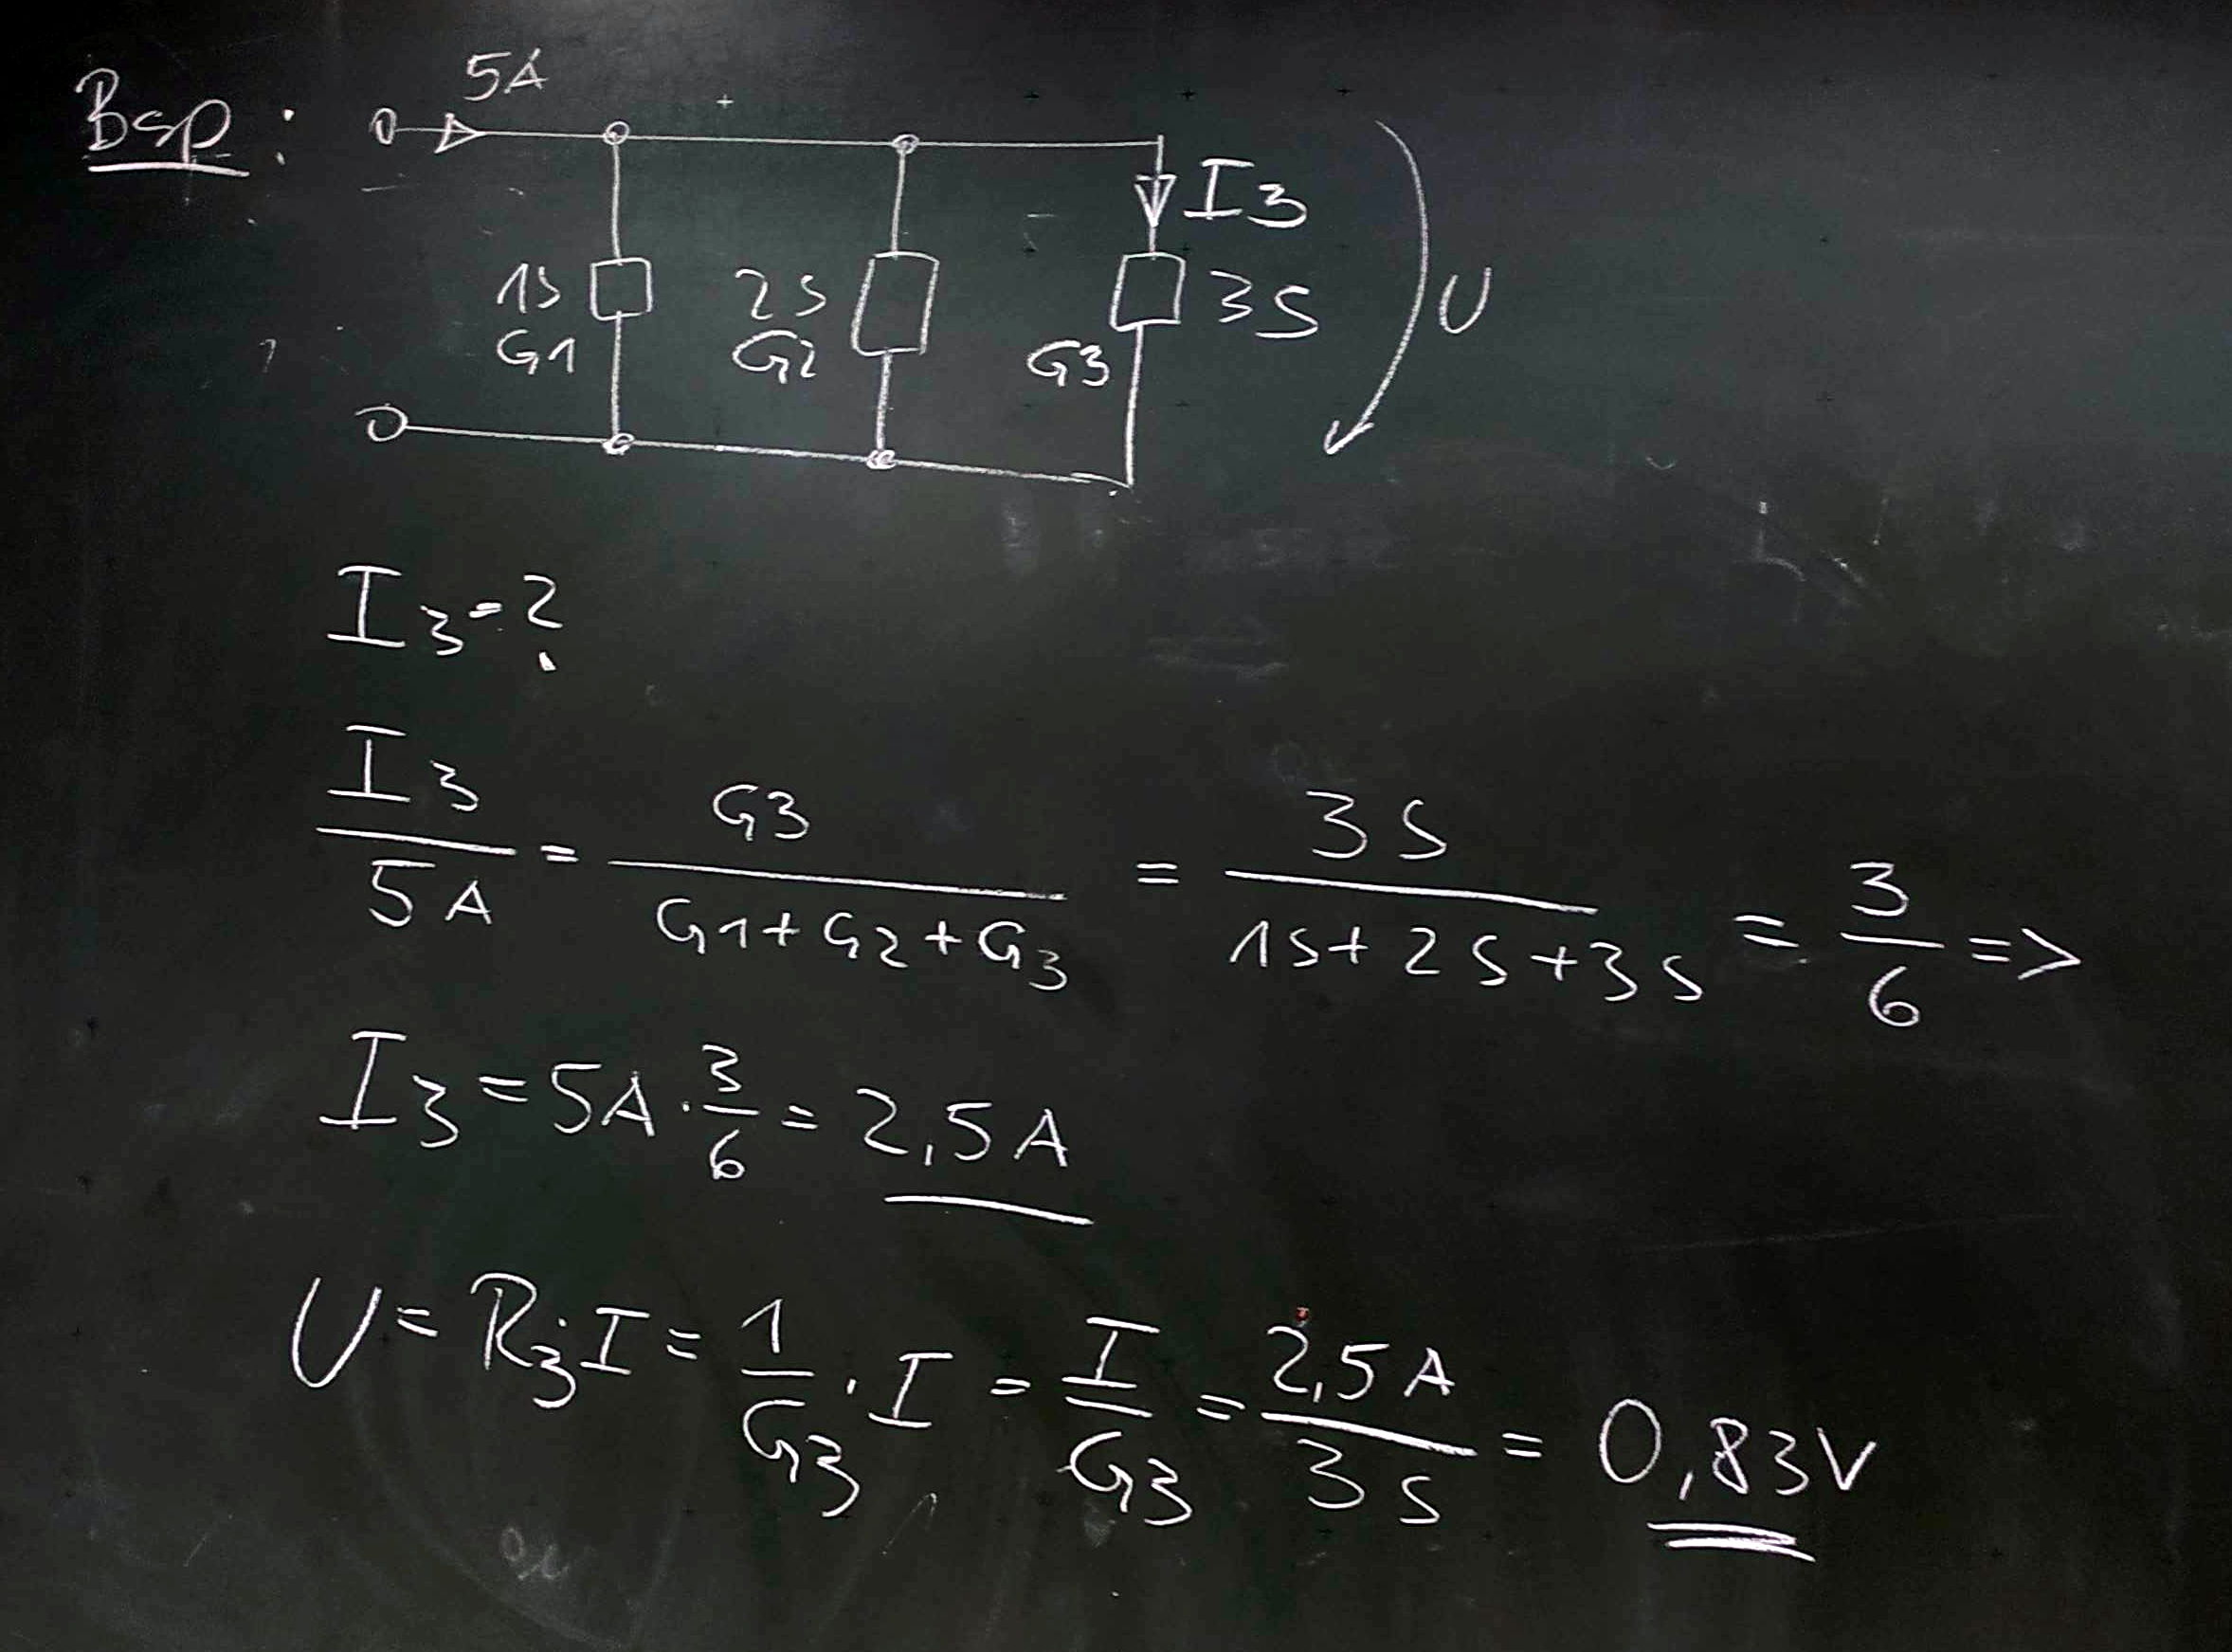 Bsp: 5A
I3
1S 2S 3S U
G1 G2 G3
I3=?
I3/5A = G3/(G1+G2+G3) = 3S/(1S+2S+3S) = 3/6 =>
I3=5A·3/6=2,5A
U=R3·I=1/G3·I=I/G3=2,5A/3S=0,83V